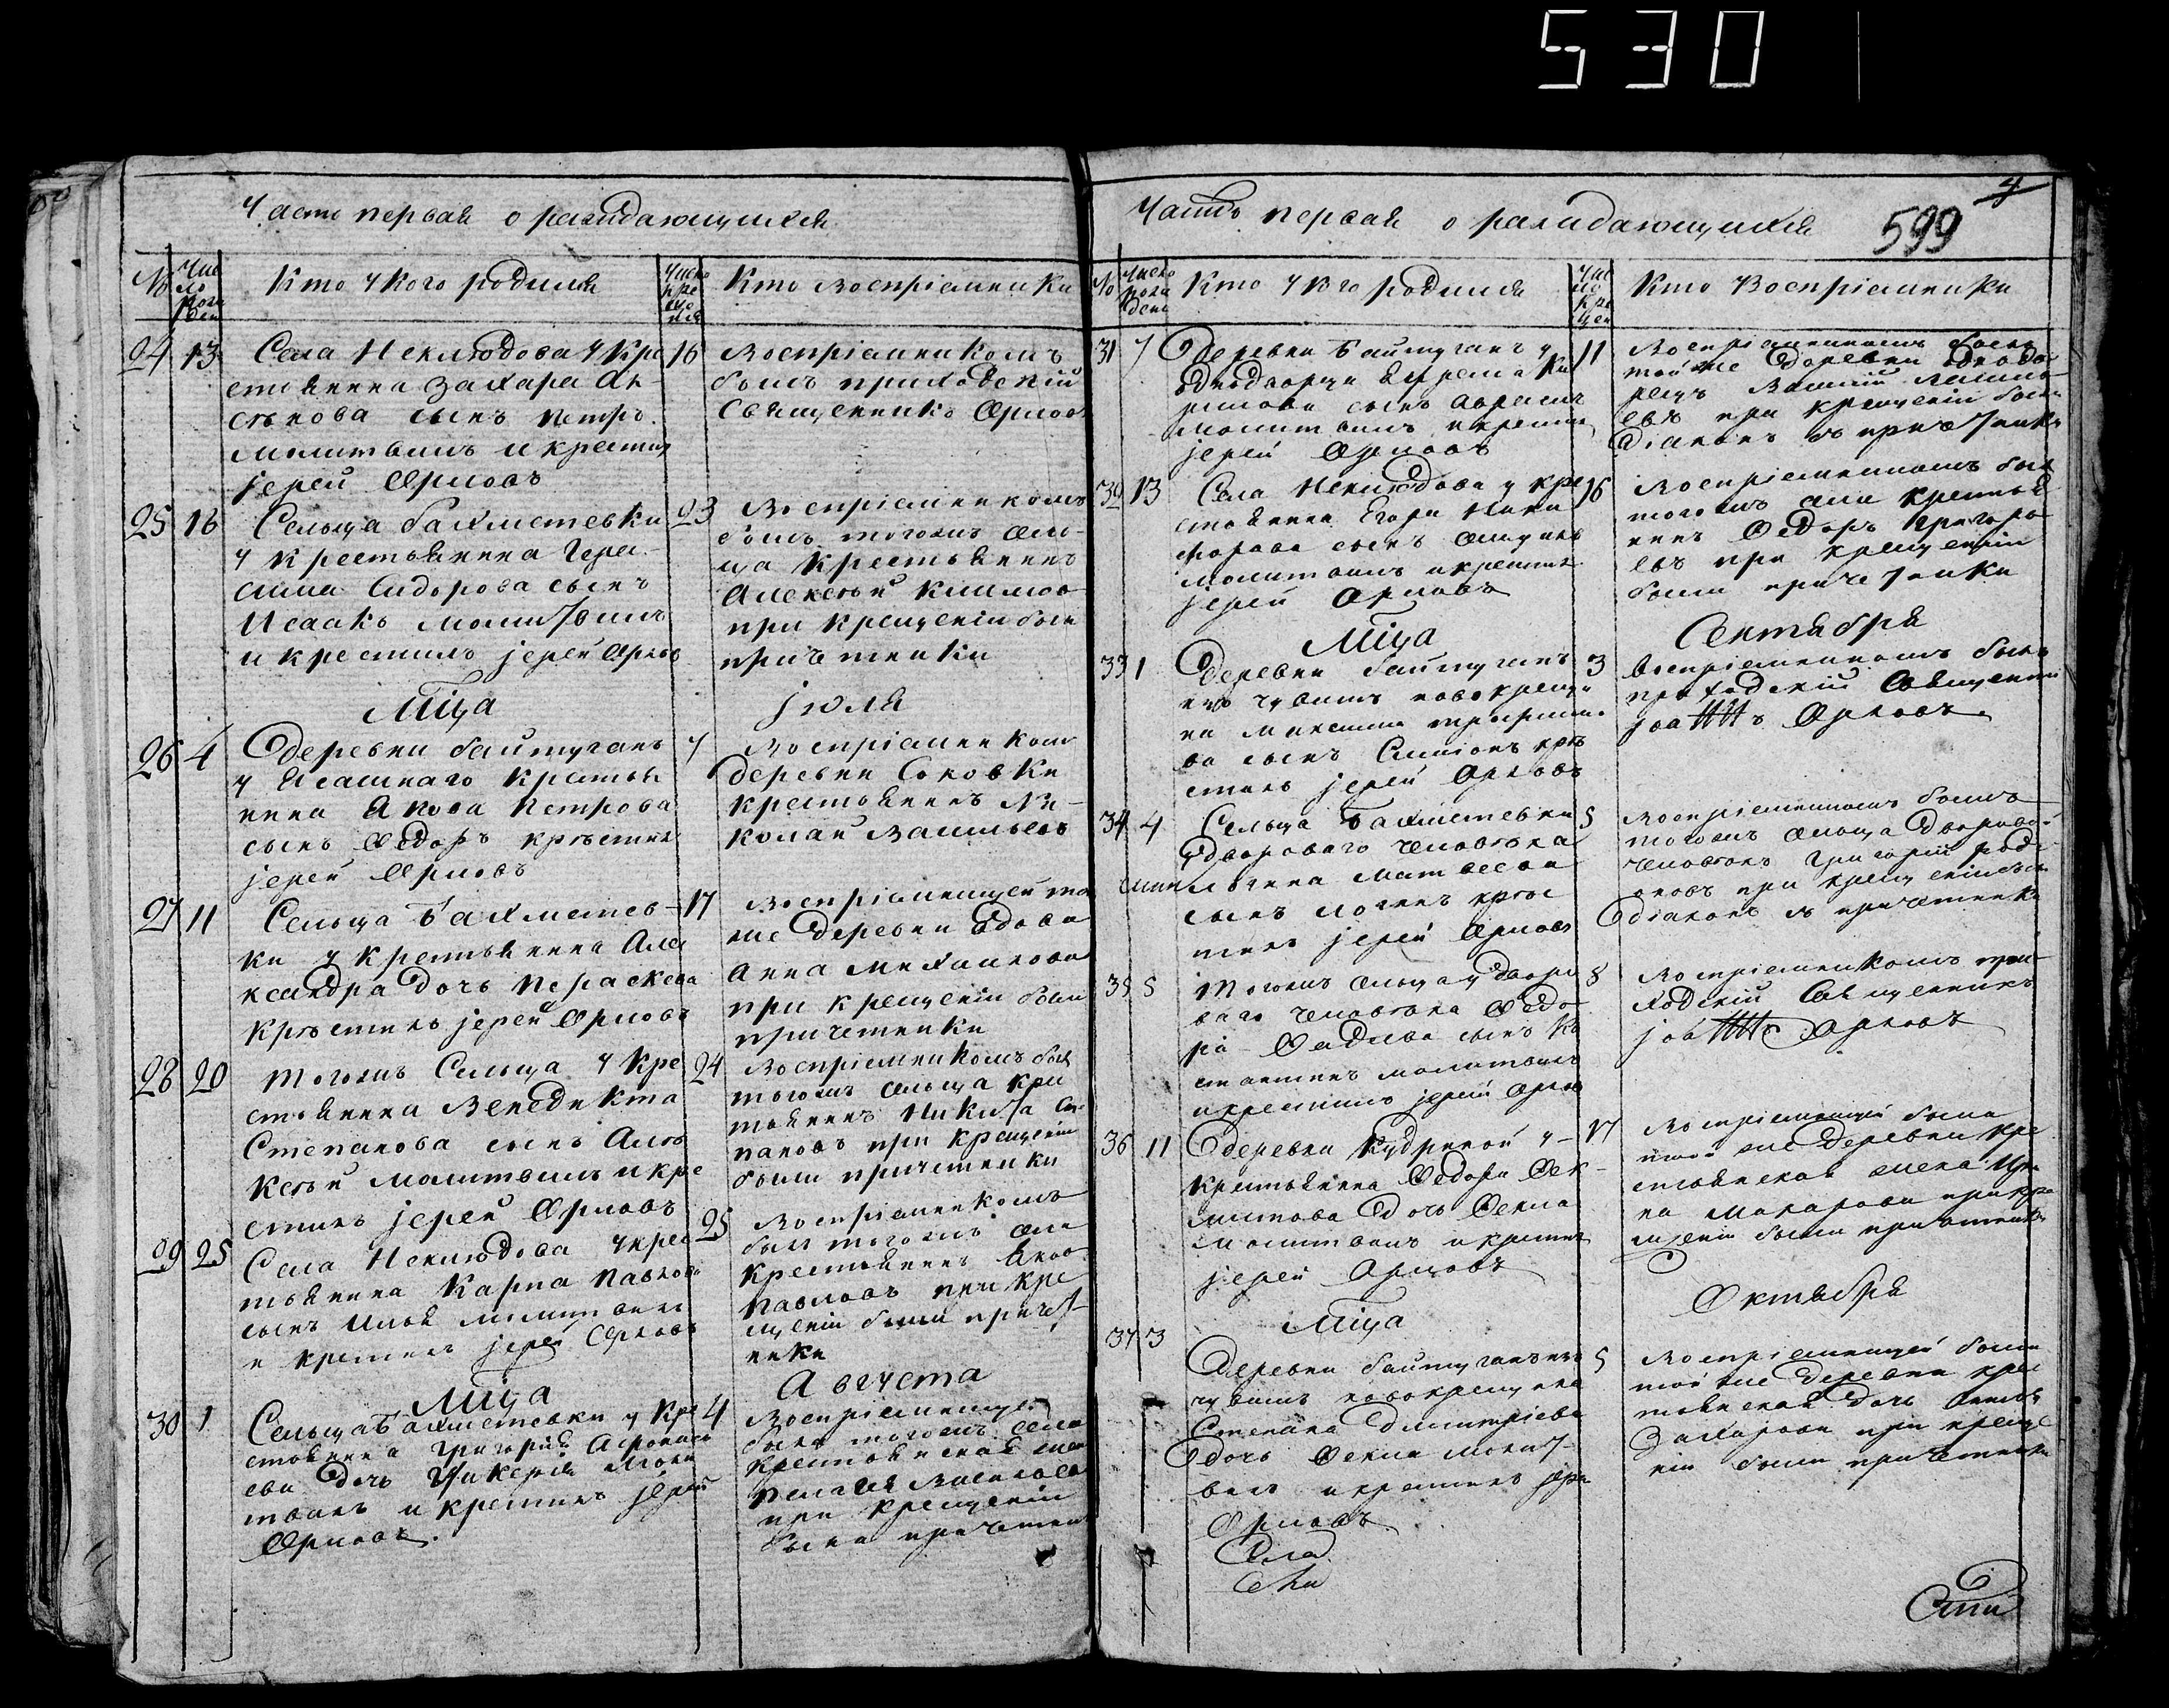 530
Часть первая о раждающихся
№
Чис
ло
рож
ден
Кто у кого родился
Число
кре
ще
нія
Кто воспріемники
24 13 Села Неклюдова у кре
стьянина Захара
сынъ Петръ.
молитвилъ и крестил
іерей Орловъ
16 Воспріемникомъ
былъ приходскій
Священникъ Орловъ
25 16 Сельца Бахметевки
у крестьянина Гера
сима Сидорова сынъ
Исаакъ молитвилъ
и крестилъ іерей Орловъ
23 Воспріемникомъ
былъ тогожъ сель
ца крестьянинъ
Алексѣй
при крещеніи были
причетники
Мца Іюля
26 4 Деревни Баитуганъ
у Ясашнаго крестья
нина Якова Петрова
сынъ Ѳедоръ крѣстилъ
іерей Орловъ
7 Воспріемником
деревни Соковки
крестьянинъ Ни-
колай Васильевъ
27 11 Сельца Бахметев-
ки у крестьянина Але
ксандра дочь Пераскева
крѣстилъ іерей Орловъ
17 Воспріемницей тое
же деревни вдова
Анна Михаилова
при крещеніи были
причетники
28 20 Тогожъ Сельца у кре
стьянина Венедикта
Степанова сынъ Алѣ
ксѣй молитвилъ и кре
стилъ іерей Орловъ
24 Воспріемникомъ был
тогожъ сельца кре
тьянинъ Никита Сте
пановъ при крещеніи
были причетники
29 25 Села Неклюдова у крес
тьянина Карпа Павлова
сынъ Илья молитвилъ
и крестилъ іерей Орловъ
25 Воспріемникомъ
былъ тогожъ села
крестьянинъ Яков
Павловъ при кре
щеніи были причет
ники
Мца Августа
30 1 Сельца Бахметевки у кре
стьянина Григорія Аѳонась
ева дочь Гликерія моли
твилъ и крестилъ іерей
Орловъ.
4 Воспріемницей
была тогожъ села
крестьянская жена
Пелагея Васильева
при крещеніи
были причетни
Часть первая о раждающихся
4
599
№
Число
рож
ден
Кто у кого родился
Чис
ло
кре
щен
Кто Воспріемники
31 7 Деревни Баитуганъ у
однодворца Ефрема Ки
рилова сынъ Аврамъ
молитвилъ и крестил
іерей Орловъ
11 Воспріемникомъ былъ
той же деревни однодво
рецъ Василій Василь
евъ при крещеніи были
діаконъ съ причетники
32 13 Села Неклюдова у кре
стьянина Егора Ники
форова сынъ
молитвилъ и крестилъ
іерей Орловъ
16 Воспріемникомъ был
тогожъ села крестья
нинъ Ѳедоръ Григорь
евъ при крещеніи
были причетники
Мца Сентября
33 1 Деревни Баитуганъ
изъ чувашъ новокреще
на Максима Трофимо
ва сынъ Симіонъ крѣ
стилъ іерей Орловъ
3 Воспріемникомъ былъ
приходскій Священник
Іоаннъ Орловъ.
34 4 Сельца Бахметевки
у двороваго человѣка
Логина Матвеева
сынъ Логинъ крѣс
тилъ іерей Орловъ
5 Воспріемникомъ былъ
тогожъ сельца дворовой
человѣкъ Григорій Роді
оновъ при крещеніи были
діаконъ съ причетники
35 5 Тогожъ сельца у дворо
ваго человѣка Ѳедо
ра Ѳадѣева сынъ Ко
стантинъ молитвилъ
и крестилъ іерей Орлов
8 Воспріемникомъ при-
ходскій Священникъ
Іоаннъ Орловъ
36 11 Деревни Кудриной у
крестьянина Ѳедора Ѳек-
листова дочь Ѳекла
молитвилъ и крестил
іерей Орловъ
17 Воспріемницей была
той же деревни кре
стьянская жена Ири
на Макарова при кре
щеніи были причетники
Мца Октября
37 3 Деревни Баитуганъ изъ
чувашъ новокрещена
Степана Дмитріева
дочь Ѳекла молит
вилъ и крестилъ іерей
Орловъ
5 Воспріемницей была
той же деревни крес
тьянская дочь
Захарова при креще
ніи были причетники